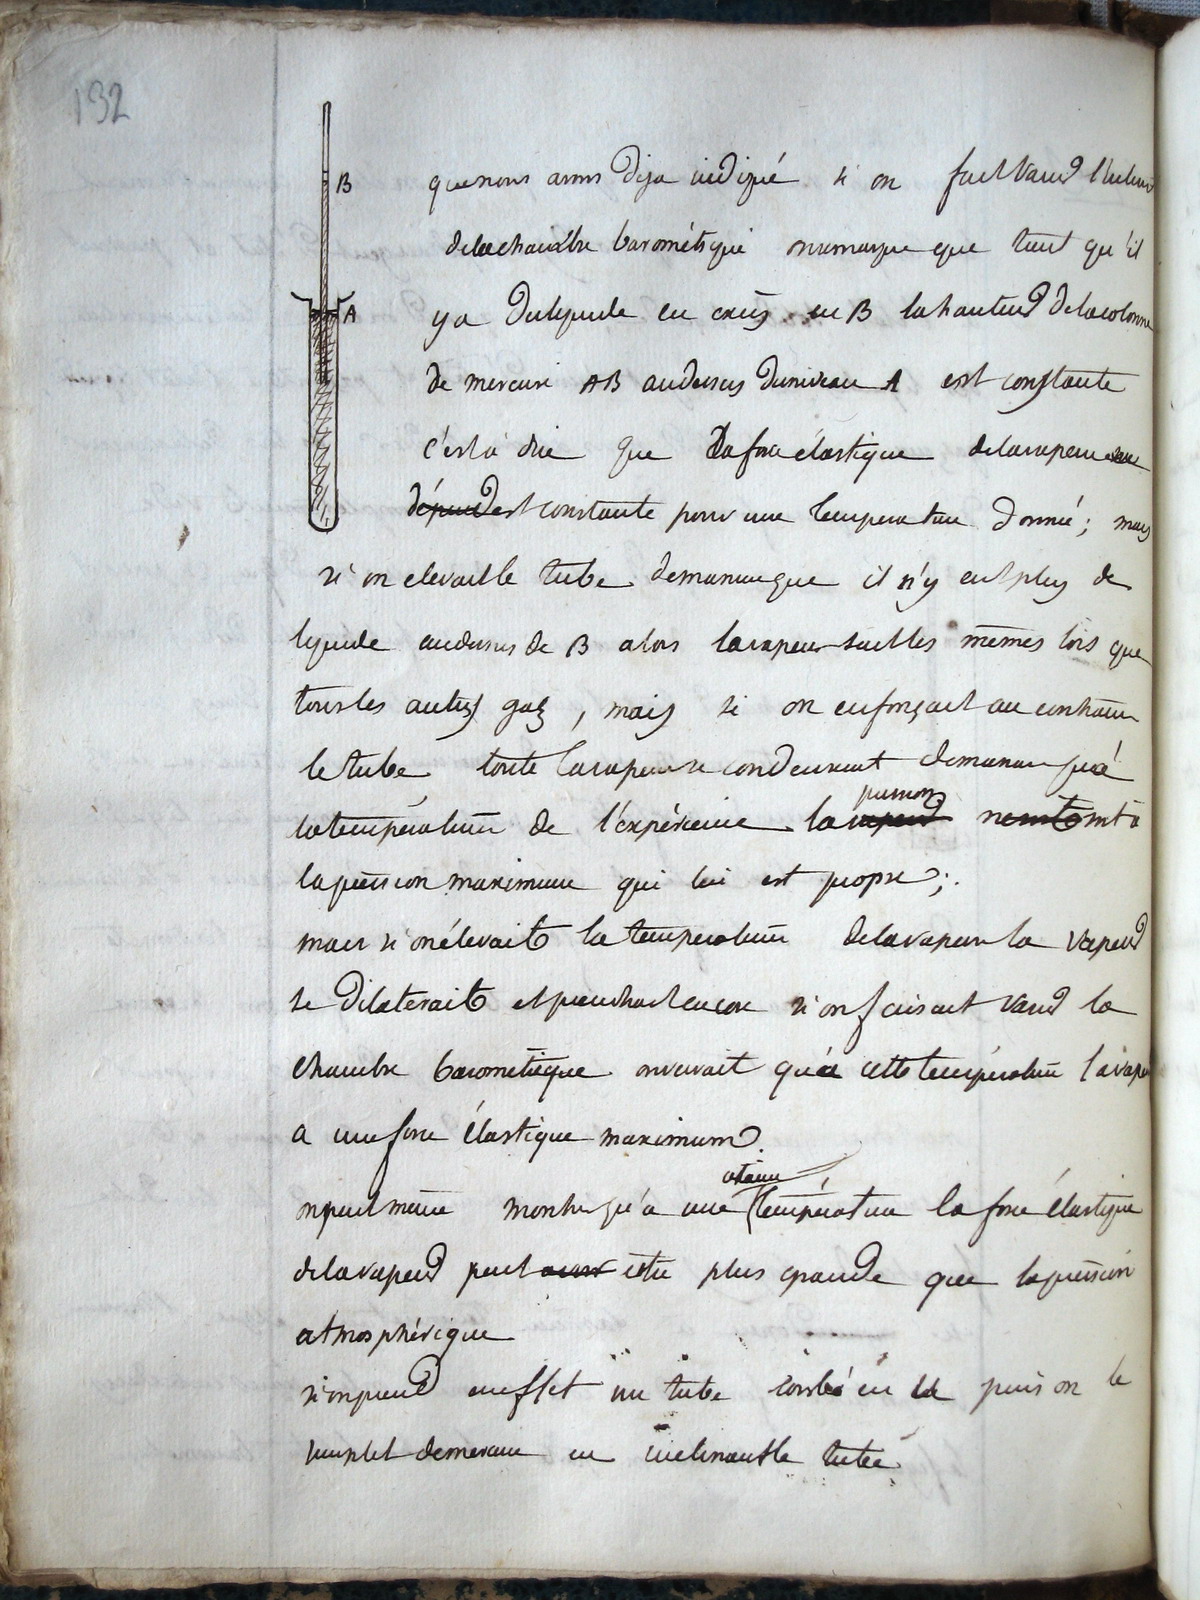 132
B
A
que nous avons deja indiqué si on fait varier
de la chambre barométrique on remarque que tant qu'il
y a du lyquide en excès en B la hauteur de la colonne
de mercure AB au dessus du niveau A est constante
c'est à dire que la force élastique de la vapeur
dépend est constante pour une temperature donnée; mais
si on elevait le tube de maniere que il n'y eut plus de
lyquide au dessus de B alors la vapeur suit les mêmes lois que
tous les autres gaz, mais si on enfonçait au contraire
le tube toute la vapeur se condenserait de maniere qu'à
pression
la température de l'expérience la vapeur à
la pression maximum qui lui est propre;
mais si on élevait la température de la vapeur la vapeur
se dilaterait et pendant encore si on faisait varier la
chambre barometrique on verrait qu'à cette température la vapeur
a une force élastique maximum.
certaine
on peut même montrer qu'à une température la force élastique
de la vapeur peut avoir être plus grande que la pression
atmosphérique
si on prend en effet un tube courbé en U puis on le
remplit de mercure en inclinant le tube